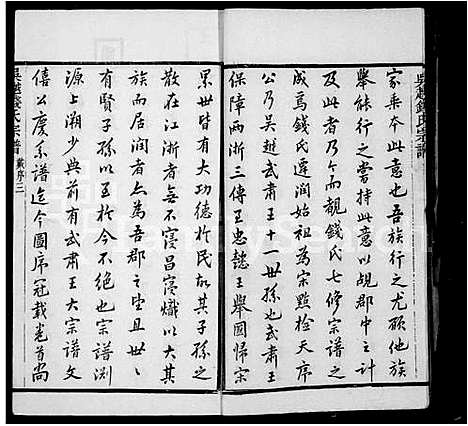 吳越錢氏宗譜
家乘本此意也吾族行之尤願他族
舉能行之嘗持此意以覘郡中之計
及此者乃今而覩錢氏七修宗譜之
成焉錢氏遷潤始祖為宗黯檢天序
公乃吳越武肅王十一世孫也武肅王
保障兩浙三傳至忠懿王舉國歸宋
累世皆有大功德於民故其子孫之
散在江浙者無不寖昌寖熾以大其
族而居潤者尤為吾郡之望且世世
有賢子孫以至於今不絕也宗譜淵
源上溯少典前有武肅王大宗譜文
僖公慶系譜迄今圖序冠載卷首尚
吳越錢氏宗譜
戴序三